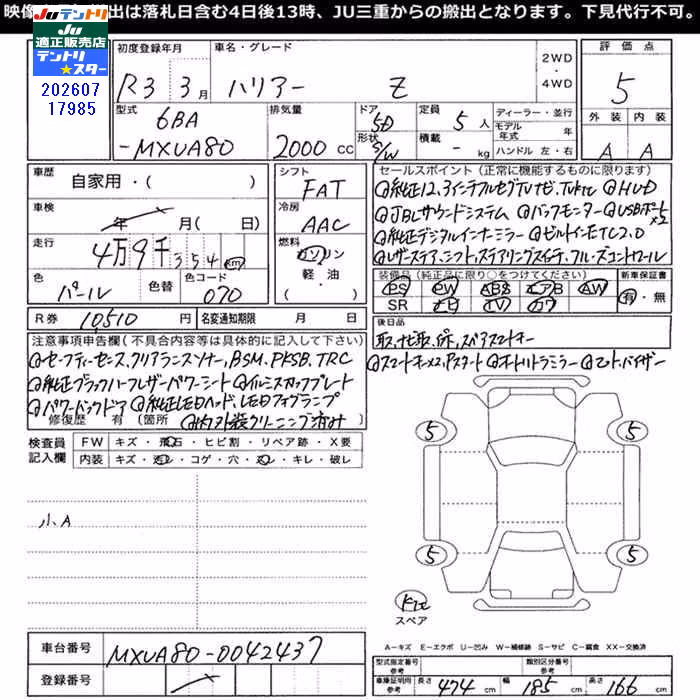 映像 出は落札日含む4日後13時、JU三重からの搬出となります。下見代行不可。
JUテントリ
JU
適正販売店
テントリ
★スター
202607
17985
初度登録年月
車名・グレード
R3 3月
ハリアー Z
2WD
・
4WD
評価点
5
外装 内装
A A
型式
6BA
-MXUA80
排気量
2000 CC
ドア
5D
形状
S/W
定員
5 人
積載
- kg
ディーラー・並行
モデル年式 年
ハンドル 左・右
車歴
自家用・( )
車検
年 月( 日)
走行
4万9千354 km
色
パール
色替
色コード
070
シフト
FAT
冷房
AAC
燃料
ガソリン
軽・油
( )
R券 10510 円
名変通知期限 月 日
セールスポイント(正常に機能するものに限ります)
@純正12.3インチフルセグTVナビ、TVkit @HUD
@JBLサウンドシステム @バックモニター @USBポート×2
@純正デジタルインナーミラー @ビルトインETC2.0
@レザーステア、シフト、ステアリングスイッチ、クルーズコントロール
装備品(純正品に限り○をつけてください)
新車保証書
PS PW ABS エアB AW
SR ナビ TV カワ
有・無
後日品
取、ナビ取、保、スペアスマートキー
注意事項申告欄(不具合内容等は具体的に記入して下さい)
@セーフティーセンス、クリアランスソナー、BSM、PKSB、TRC
@純正ブラックハーフレザーパワーシート @イルミスカッフプレート
@パワーバックドア @純正LEDヘッド、LEDフォグランプ
修復歴 有 (箇所 @内外装クリーニング済み
@スマートキー×2、Pスタート @オートリトラミラー @ドアバイザー
検査員
記入欄
FW キズ・飛石・ヒビ割・リペア跡・X要
内装 キズ・汚レ・コゲ・穴・スレ・キレ・破レ
小A
5
5
5
5
キット
スペア
A-キズ E-エクボ U-凹み W-補修跡 S-サビ C-腐食 XX-交換済
車台番号 MXUA80-0042437
登録番号
型式指定番号
参考
類別区分番号
参考
車庫証明用
参考
長さ 474 cm
幅 185 cm
高さ 166 cm